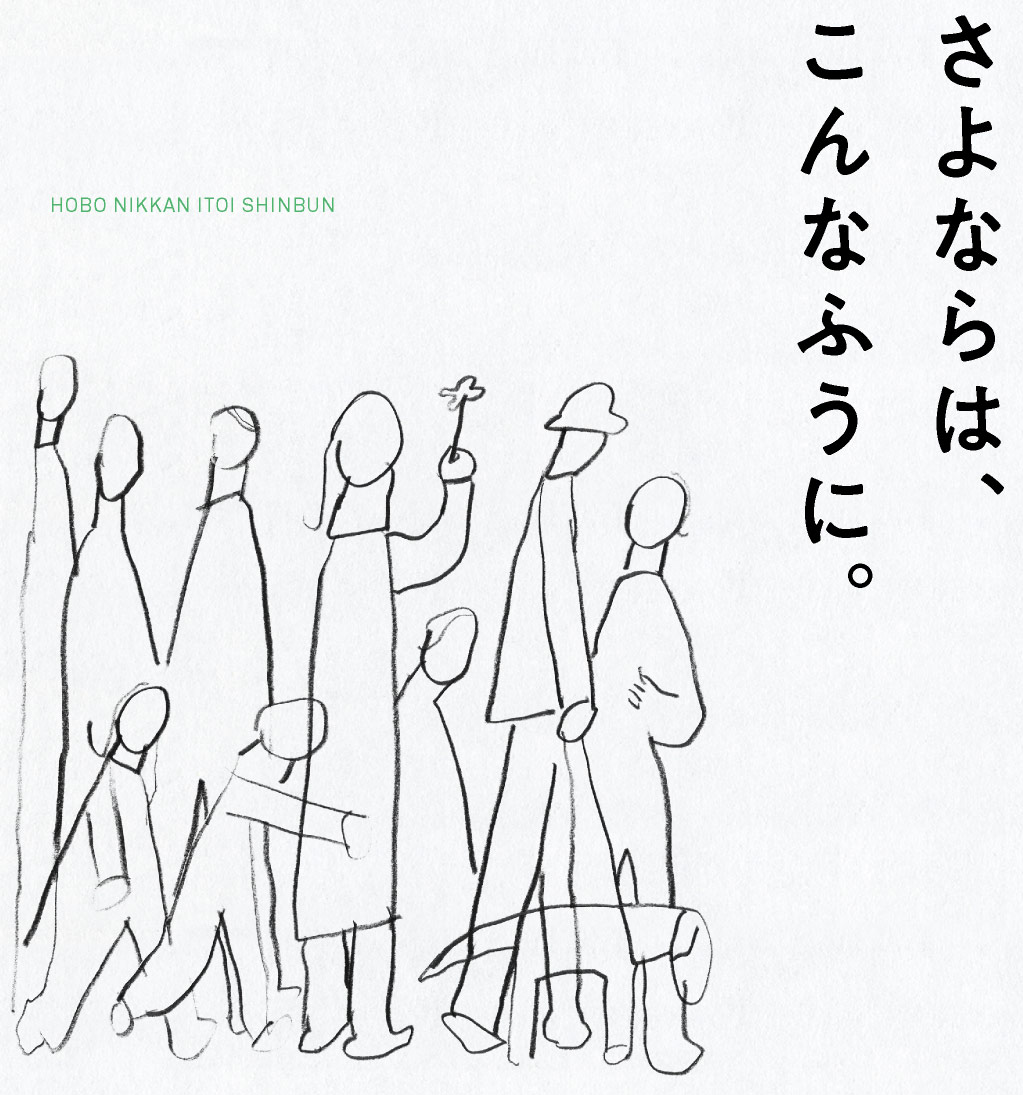 さよならは、
こんなふうに。
HOBO NIKKAN ITOI SHINBUN